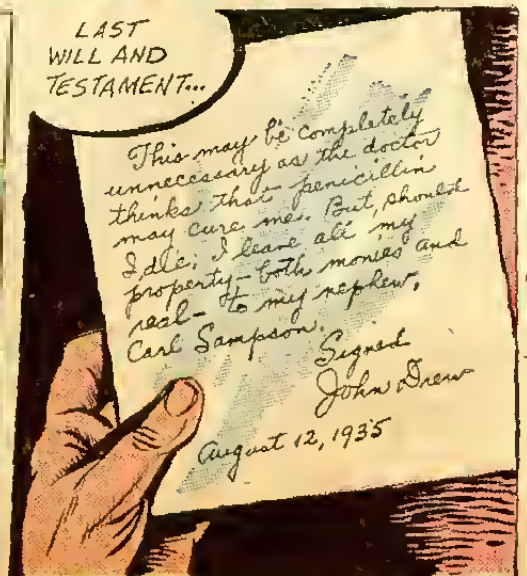 LAST
WILL AND
TESTAMENT...
This may be completely
unnecessary as the doctor
thinks that penicillin
may cure me. But, should
I die, I leave all my
property - both monies and
real - to my nephew,
Carl Sampson.
Signed
John Drew
August 12, 1935